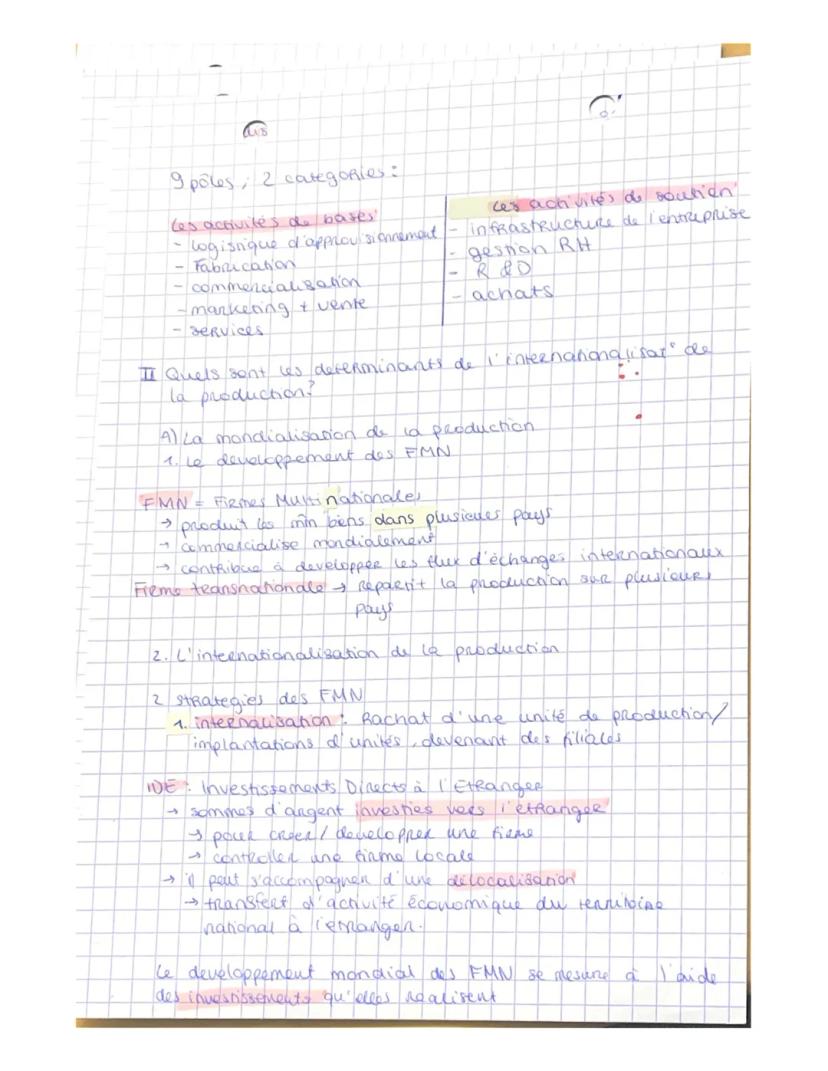 9 pôles, 2 categories :
Les activités de bases
- logistique d'approvisionnement
- Fabrication
- commercialisation
- marketing + vente
- services
Les activités de soutien
- infrastructure de l'entreprise
- gestion RH
- R &D
- achats
II Quels sont les determinants de l'internationalisat° de
la production?
A) La mondialisation de la production
1. Le developpement des FMN
FMN = Firmes Multinationales
→ produit les mm biens dans plusieurs pays
→ commercialise mondialement
→ contribue à developper les flux d'échanges internationaux
Firme transnationale → Repartit la production sur plusieurs
pays
2. L'internationalisation de la production
2 strategies des FMN
1. internalisation : Rachat d'une unité de production/
implantations d'unités, devenant des filiales
IDE : Investissements Directs à l'Etranger
→ sommes d'argent investies vers l'étranger
→ pour creer / developper une firme
→ controller une firme locale
→ il peut s'accompagner d'une délocalisation
→ transfert d'activité économique du territoire
national à l'etranger.
Le developpement mondial des FMN se mesure à l'aide
des investissements qu'elles realisent